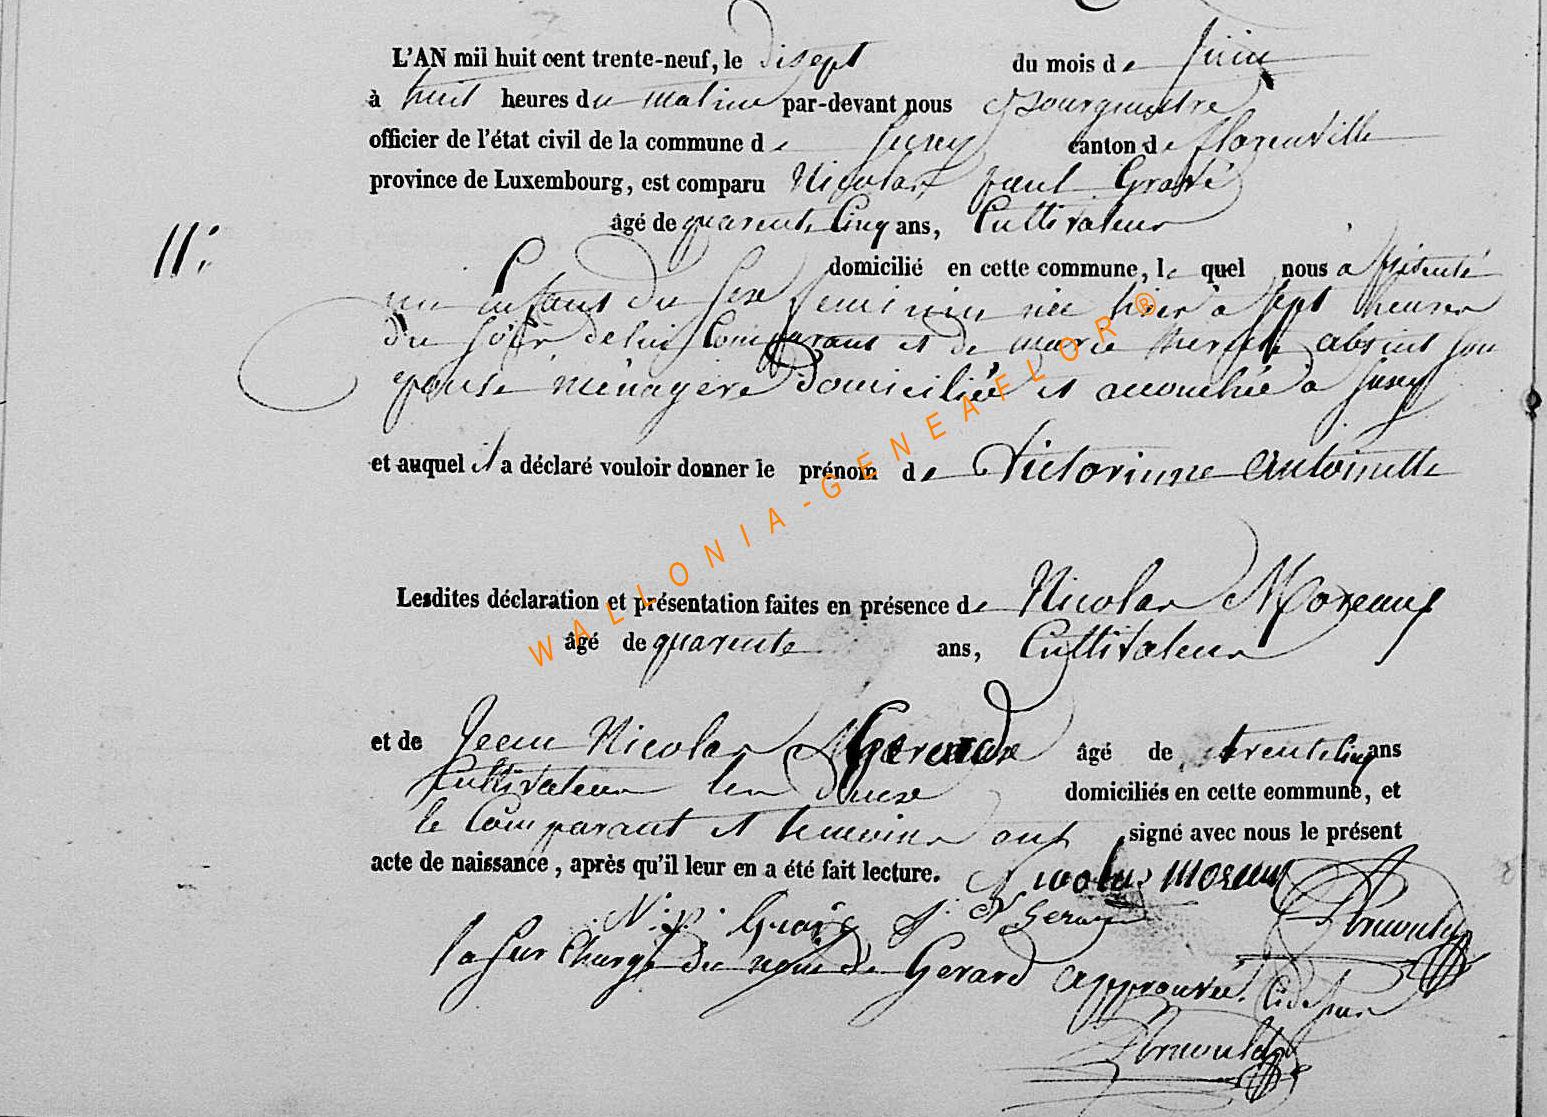 L'AN mil huit cent trente-neuf, le disept du mois de juin
à huit heures du matin par-devant nous Bourgmestre
officier de l'état civil de la commune de canton de florenville
province de Luxembourg, est comparu Nicolas paul Gravé
âgé de quarente Cinq ans, Cultivateur
11:
domicilié en cette commune, le quel nous a présenté
un enfant du sexe feminin née hier à sept heures
du soir de lui Comparant et de marie absint son
épouse ménagère domiciliée et accouchée a
et auquel il a déclaré vouloir donner le prénom de Victorinne Antoinette
Lesdites déclaration et présentation faites en présence de Nicolas Moreaux
âgé de quarente ans, Cultivateur
et de Jean Nicolas Gerard âgé de trente Cinq ans
Cultivateur les deux domiciliés en cette commune, et
le Comparant et temoins ont signé avec nous le présent
acte de naissance, après qu'il leur en a été fait lecture. Nicolas moreaux
N. p. Gravé J. N Gerard
la sur Charge du nom de Gerard approuvée.
WALLONIA-GENEAFLOR ®